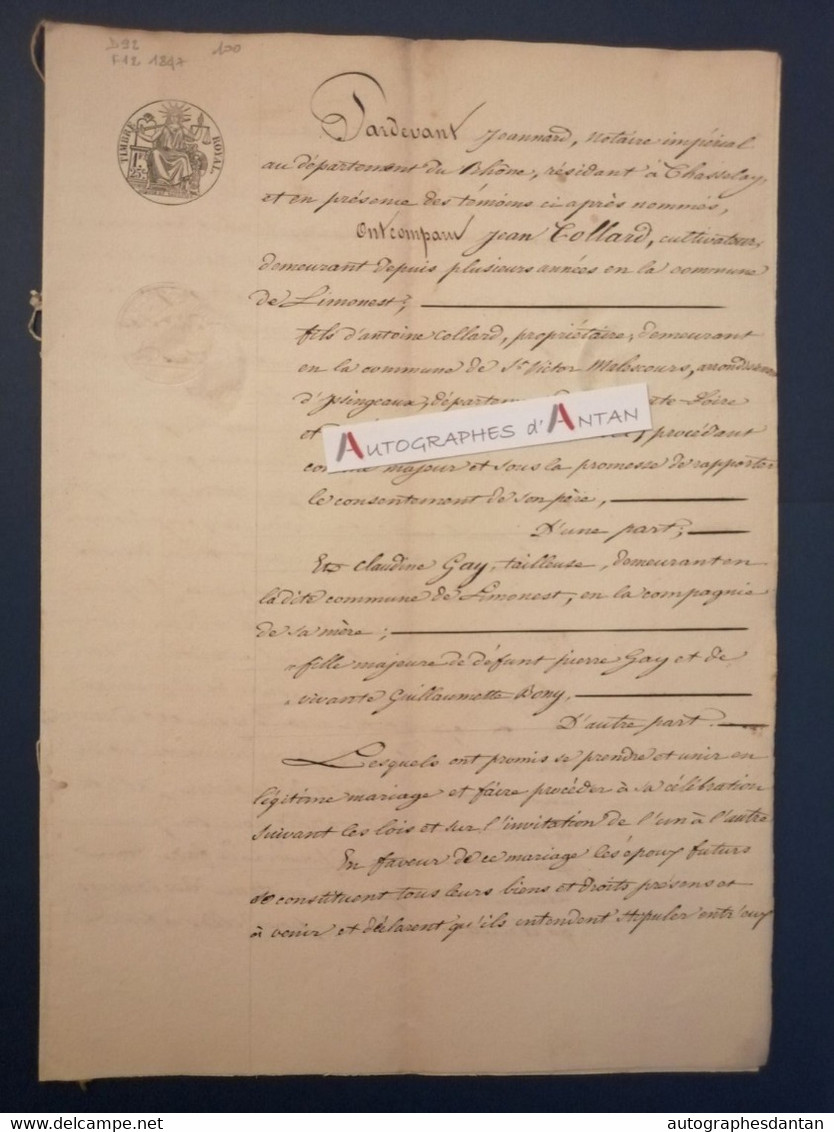 D92 100
F12 1847
TIMBRE ROYAL
1F
25c
Pardevant Jeannard, notaire impérial
au département du Rhône, résidant à Chasselay,
et en présence des témoins ci après nommés,
Ont comparu Jean Collard, cultivateur,
demeurant depuis plusieurs années en la commune
de Limonest,
fils d'antoine Collard, propriétaire, demeurant
en la commune de St. Victor Malescours, arrondissem
d'yssingeaux, départem te-Loire
et procédant
co majeur et sous la promesse de rapporter
le consentement de son père,
D'une part;
Et claudine Gay, tailleuse, demeurant en
la dite commune de Limonest, en la compagnie
de sa mère;
fille majeure de défunt pierre Gay et de
vivante Guillaumette Bony,
D'autre part.
Lesquels ont promis se prendre et unir en
légitime mariage et faire procéder à sa célébration
suivant les lois et sur l'invitation de l'un à l'autre
En faveur de ce mariage les époux futurs
se constituent tous leurs biens et droits présens et
à venir et déclarent qu'ils intendent stipuler entr'eux
AUTOGRAPHES d'ANTAN
delcampe.net
autographesdantan